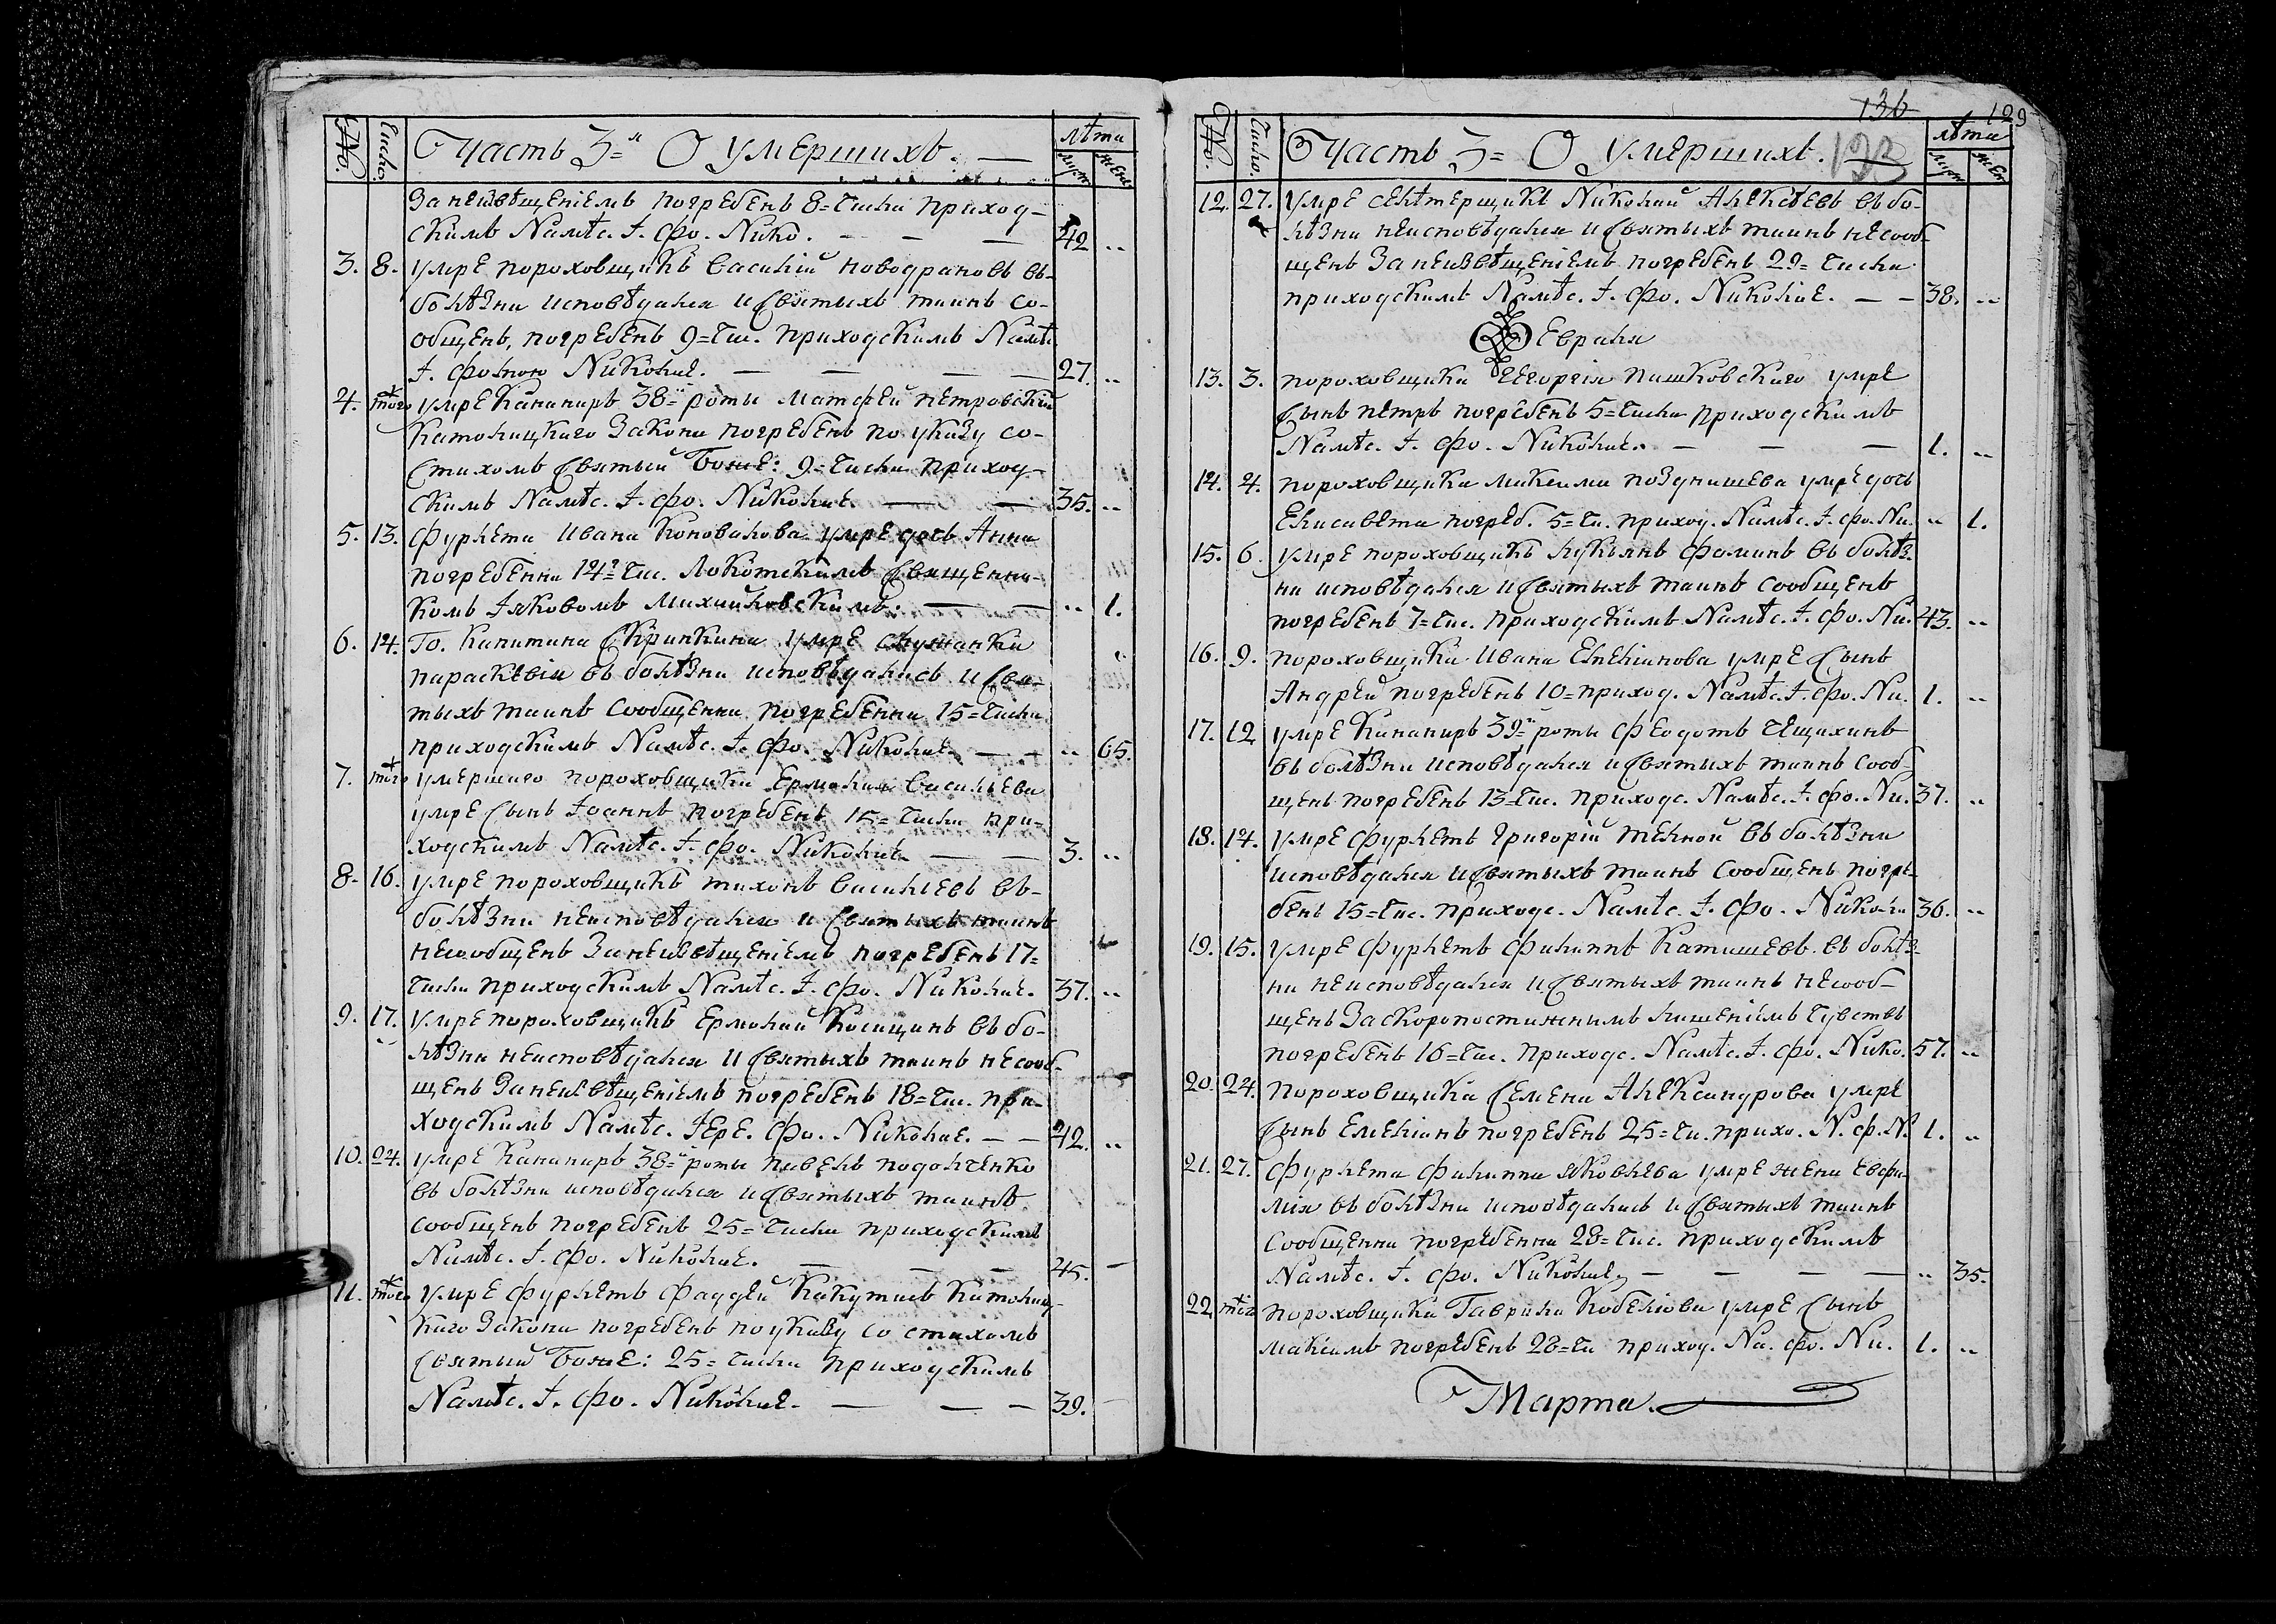 №. Число. Часть 3=я О умершихъ. лѣта
муж. жен.
за неизвѣщеніемъ погребенъ 8= числа приход-
скимъ Намѣс. І. Фо. Нико. 42 ..
3. 8. умре пороховщикъ Василій Новодрановъ въ
болѣзни исповѣдался и святыхъ таинъ со-
общенъ, погребенъ 9= чис. приходскимъ Намѣс.
І. Фотою Николае. 27. ..
4. того умре Кананиръ 38=й роты Матфей Петровскій
Католицкаго закона погребенъ по указу со-
стихомъ Святый Боже: 9= числа приход-
скимъ Намѣс. І. Фо. Николае. 35. ..
5. 13. Фурлета Ивана Коновалова умре дочь Анна
погребенна 14= чис. Локотскимъ Священни-
комъ Іяковомъ Михайловскимъ. .. 1.
6. 14. Го. Капитана Скрипкина умре служанка
Параскевія въ болѣзни исповѣдалась и свя-
тыхъ таинъ сообщенна погребенна 15= числа
приходскимъ Намѣс. І. Фо. Николае. .. 65.
7. того умершаго пороховщика Ермолая Васильева
умре сынъ Іоаннъ погребенъ 15= числа при-
ходскимъ Намѣс. І. Фо. Николае. 3. ..
8. 16. умре пороховщикъ Тихонъ Васильевъ въ
болѣзни неисповѣдался и святыхъ таинъ
несообщенъ за неизвѣщеніемъ погребенъ 17=
числа приходскимъ Намѣс. І. Фо. Николае. 37. ..
9. 17. умре пороховщикъ Ермолай Косицынъ въ бо-
лѣзни неисповѣдался и святыхъ таинъ несооб-
щенъ за неизвѣщеніемъ погребенъ 18= чис. при-
ходскимъ Намѣс. Іере. Фо. Николае. 42. ..
10. 24. умре Кананиръ 38=й роты Павелъ Подольченко
въ болѣзни исповѣдался и святыхъ таинъ
сообщенъ погребенъ 25= числа приходскимъ
Намѣс. І. Фо. Николае. 45.
11. того умре фурлетъ Фаддей Какутисъ Католиц-
каго закона погребенъ по указу со стихомъ
Святый Боже: 25= числа приходскимъ
Намѣс. І. Фо. Николае. 39.
136
129
№. Число. Часть 3= О умершихъ. 123 лѣта
муж. жен
12. 27. умре селитерщикъ Николай Алексѣевъ въ бо-
лѣзни неисповѣдался и святыхъ таинъ несооб-
щенъ за неизвѣщеніемъ погребенъ 29= числа
приходскимъ Намѣс. І. Фо. Николае. 38. ..
Февраля
13. 3. пороховщика Георгія Пашковскаго умре
сынъ Петръ погребенъ 5= числа приходскимъ
Намѣс. І. Фо. Николае. 1. ..
14. 4. пороховщика Максима Позднышева умре дочь
Елисавета погреб. 5= чи. приход. Намѣс. І. Фо. Ни. .. 1.
15. 6. умре пороховщикъ Лукьянъ Фоминъ въ болѣз-
ни исповѣдался и святыхъ таинъ сообщенъ
погребенъ 7= чис. приходскимъ Намѣс. І. Фо. Ни. 43. ..
16. 9. пороховщика Ивана Емельянова умре сынъ
Андрей погребенъ 10= приход. Намѣс. І. Фо. Ни. 1. ..
17. 12 умре Кананиръ 39=й роты Феодотъ Чещихинъ
въ болѣзни исповѣдался и святыхъ таинъ сооб-
щенъ погребенъ 13= чис. приходс. Намѣс. І. Фо. Ни. 37. ..
18. 14. умре фурлетъ Григорій Теклой въ болѣзни
исповѣдался и святыхъ таинъ сообщенъ погре-
бенъ 15= чис. приходс. Намѣс. І. Фо. Никола 36. ..
19. 15. умре фурлетъ Филиппъ Катышевъ въ болѣз-
ни неисповѣдался и святыхъ таинъ несооб-
щенъ за скоропостижнымъ лишеніемъ чувствъ
погребенъ 16= чис. приходс. Намѣс. І. Фо. Нико. 57. ..
20. 24. пороховщика Семена Александрова умре
сынъ Емельянъ погребенъ 25= чи. прихо. Н. Ф. Н. 1. ..
21. 27. Фурлета Филиппа Яковлева умре жена Евфи-
мія въ болѣзни исповѣдалась и святыхъ таинъ
сообщенна погребенна 28= чис. приходскимъ
Намѣс. І. Фо. Николае. .. 35.
22 того пороховщика Гаврила Кобелева умре сынъ
Максимъ погребенъ 28= чи приход. На. Фо. Ни. 1. ..
Марта.